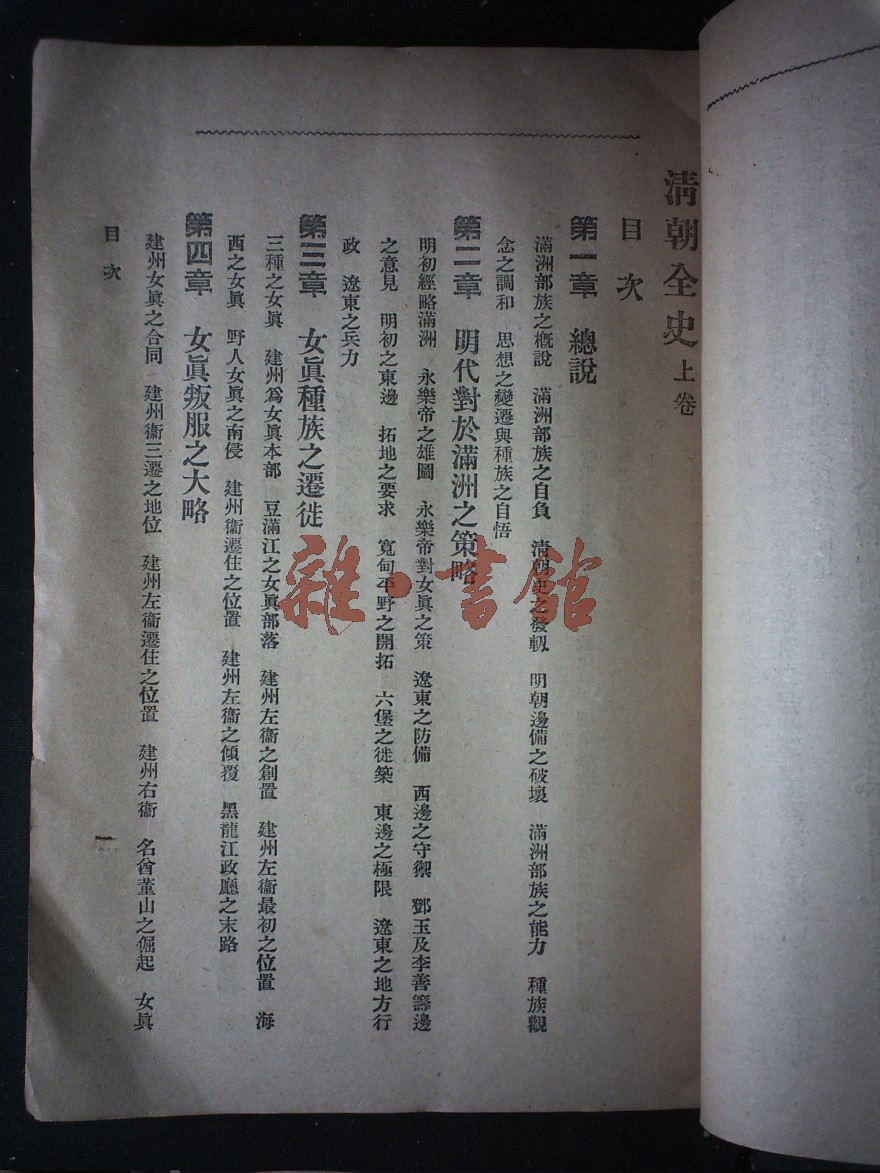 清朝全史 上卷
目次
第一章 總說
滿洲部族之槪說 滿洲部族之自負 清朝史之發軔 明朝邊備之破壞 滿洲部族之能力 種族觀
念之調和 思想之變遷與種族之自悟
第二章 明代對於滿洲之策略
明初經略滿洲 永樂帝之雄圖 永樂帝對女眞之策 遼東之防備 西邊之守禦 鄧玉及李善籌邊
之意見 明初之東邊 拓地之要求 寬甸平野之開拓 六堡之徙築 東邊之極限 遼東之地方行
政 遼東之兵力
第三章 女眞種族之遷徙
三種之女眞 建州爲女眞本部 豆滿江之女眞部落 建州左衞之創置 建州左衞最初之位置 海
西之女眞 野人女眞之南侵 建州衞遷住之位置 建州左衞之傾覆 黑龍江政廳之末路
第四章 女眞叛服之大略
建州女眞之合同 建州衞三遷之地位 建州左衞遷住之位置 建州右衞 名酋董山之倔起 女眞
目次
一
雜·書館